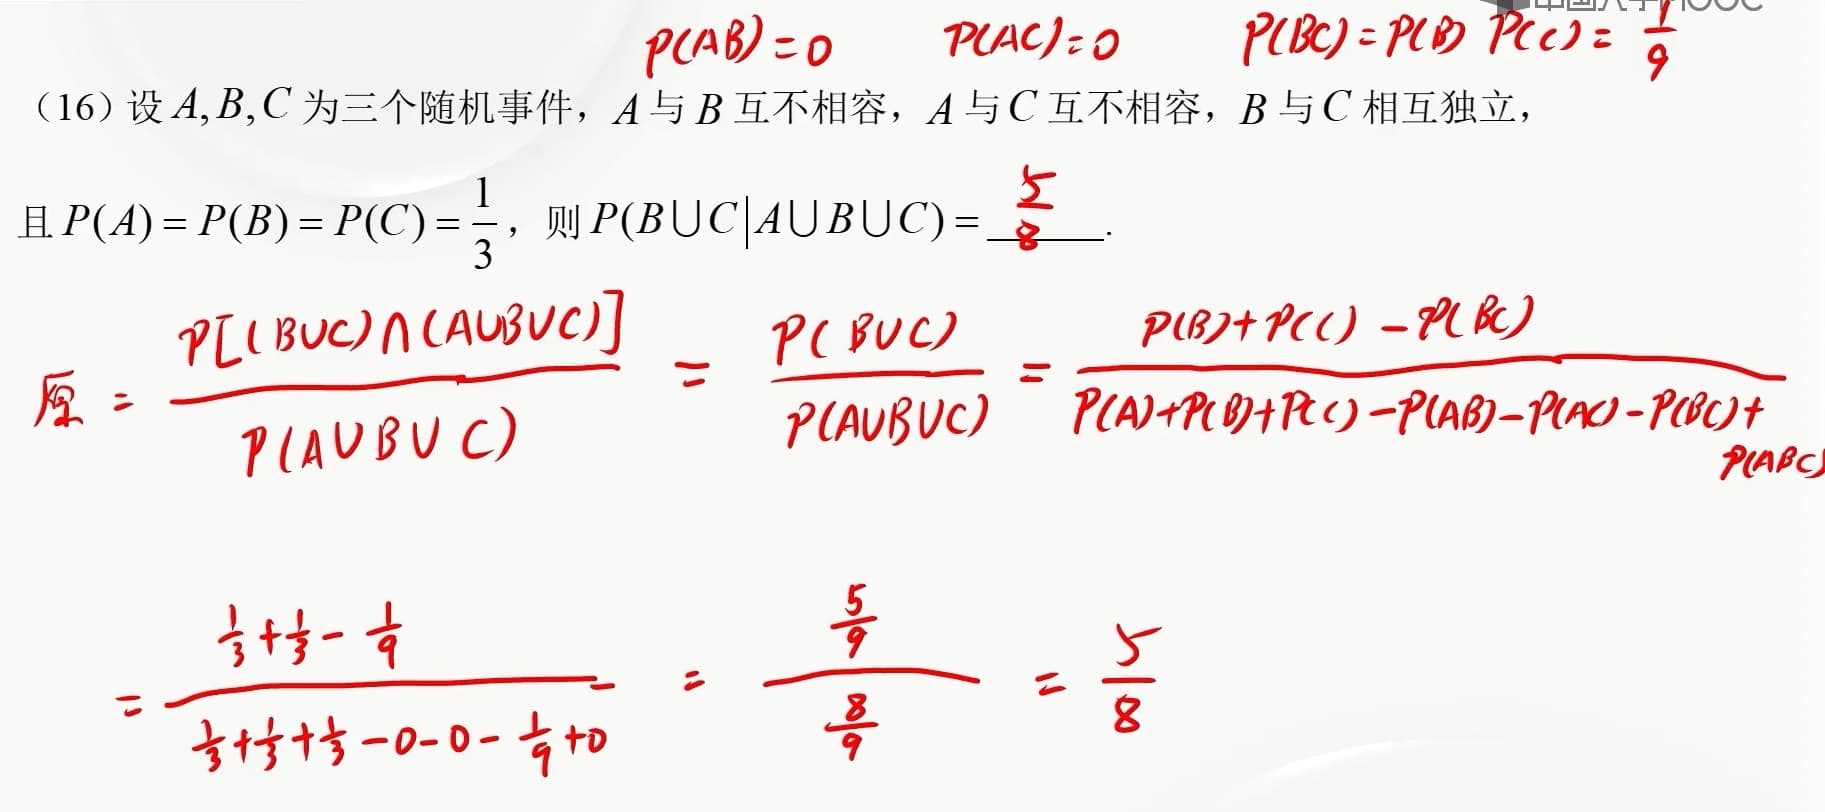 中国大学MOOC
P(AB)=0 P(AC)=0 P(BC)=P(B) P(C)= 1/9
（16）设 A,B,C 为三个随机事件，A 与 B 互不相容，A 与 C 互不相容，B 与 C 相互独立，
且 P(A) = P(B) = P(C) = 1/3，则 P(B∪C|A∪B∪C) = 5/8.
原 = P[(B∪C)∩(A∪B∪C)]/P(A∪B∪C) = P(B∪C)/P(A∪B∪C) = P(B)+P(C)-P(BC)/P(A)+P(B)+P(C)-P(AB)-P(AC)-P(BC)+
P(ABC)
= 1/3+1/3-1/9/1/3+1/3+1/3-0-0-1/9+0 = 5/9/8/9 = 5/8